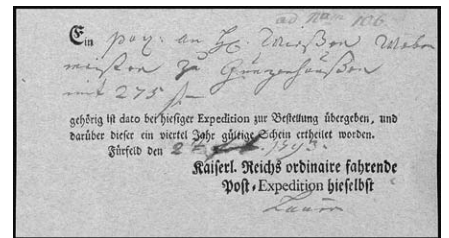 ad Num 106.
Ein pax: an H: Weber
meister zu Gunzenhaußen
mit 275 f
gehörig ist dato bei hiesiger Expedition zur Bestellung übergeben, und
darüber dieser ein viertel Jahr gültige Schein ertheilet worden.
Fürfeld den 2t 1793.
Kaiserl. Reichs ordinaire fahrende
Post-Expedition hieselbst